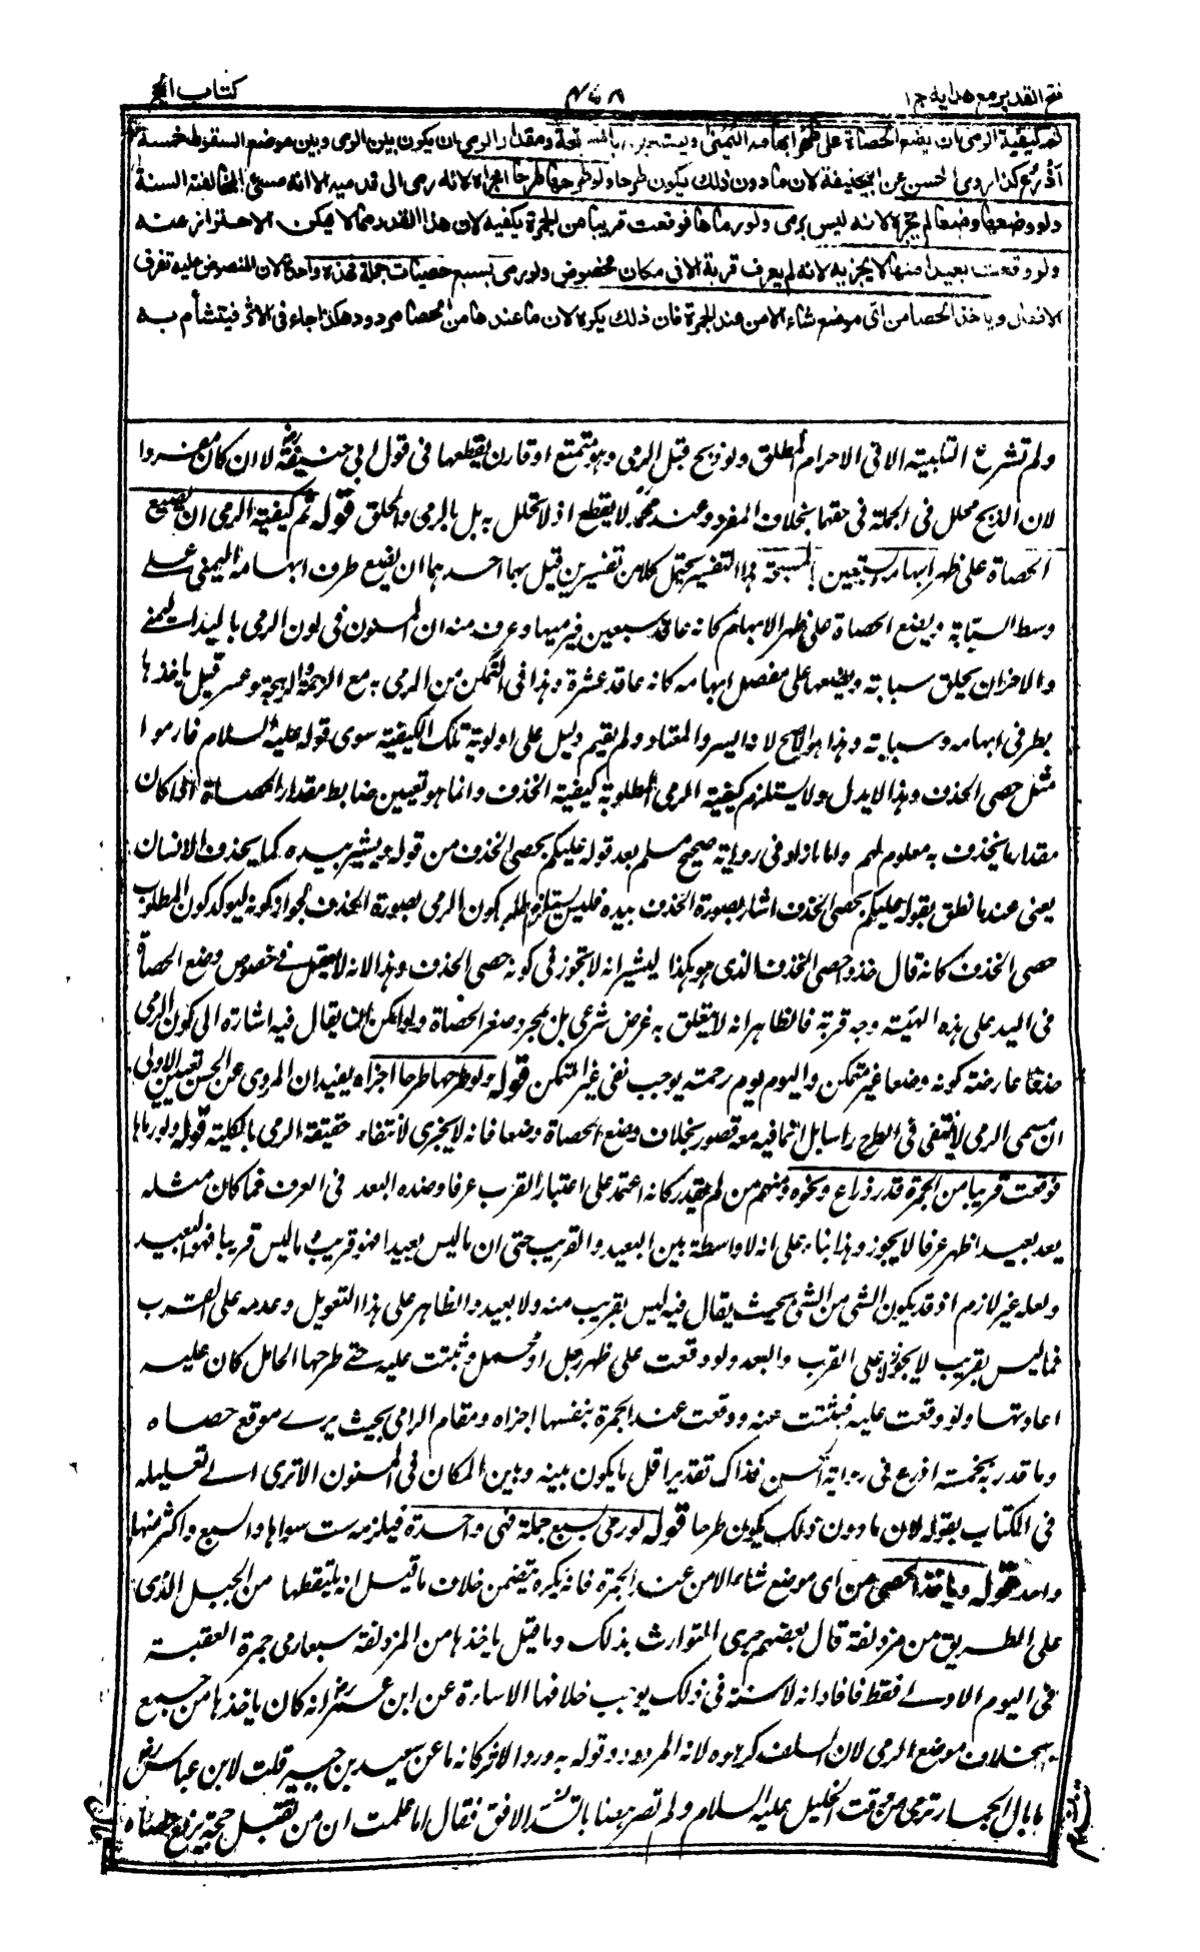 فتح القدير مع هداية ج ١
كتاب الحج
ثم كيفية الرمي ان يضع الحصاة على ظهر ابهامه اليمنى ويستعين بالمسبحة ومقدار الرمي ان يكون بين الرمي وبين موضع السقوط خمسة
اذرع كذا روى الحسن عن ابي حنيفة لان ما دون ذلك يكون طرحا ولو طرحها طرحا اجزاه لانه رمى الى قدميه الا انه مسيئ لمخالفته السنة
ولو وضعها وضعا لم يجزه لانه ليس برمي ولو رماها فوقعت قريبا من الجمرة يكفيه لان هذا القدر مما لا يمكن الاحتراز عنه
ولو وقعت بعيدا منها لا يجزيه لانه لم يعرف قربة الا في مكان مخصوص ولو رمى بسبع حصيات جملة فهذه واحدة لان المنصوص عليه تفرق
الافعال وياخذ الحصا من اي موضع شاء الا من عند الجمرة فان ذلك يكره لان ما عندها من الحصا مردود هكذا جاء في الاثر فيتشأم به
ولم تشرع التلبية الا في الاحرام المطلق ولو ذبح قبل الرمي وهو متمتع او قارن يقطعها في قول ابي حنيفة لا ان كان مفردا
لان الذبح محلل في الجملة في حقهما بخلاف المفرد وعند محمد لا يقطع اذ لا تحلل به بل بالرمي والحلق قوله ثم كيفية الرمي ان يضع
الحصاة على ظهر ابهامه ويستعين بالمسبحة هذا التفسير يحتمل كلا من تفسيرين قيل بهما احدهما ان يضع طرف ابهامه اليمنى على
وسط السبابة ويضع الحصاة على ظهر الابهام كانه عاقد سبعين فيرميها وعرف منه ان المسنون في كون الرمي باليد اليمنى
والاخر ان يحلق سبابته ويضعها على مفصل ابهامه كانه عاقد عشرة وهذا في التمكن من الرمي به مع الزحمة والوهجة عسر وقيل ياخذها
بطرفي ابهامه وسبابته وهذا هو الاصح لانه اليسر والمعتاد ولم يقم دليل على اولوية تلك الكيفية سوى قوله عليه السلام فارموا
مثل حصى الخذف وهذا لا يدل ولا يستلزم كيفية الرمي المطلوبة كيفية الخذف وانما هو تعيين ضابط مقدار الحصاة اذا كان
مقدار ما يخذف به معلوما لهم واما ما زاد في رواية صحيح مسلم بعد قوله عليكم بحصى الخذف من قوله ويشير بيده كما يخذف الانسان
يعني عندما نطق بقوله عليكم بحصى الخذف اشار بصورة الخذف بيده فليس يستلزم طلب كون الرمي بصورة الخذف لجواز كونه ليؤكد كون المطلوب
حصى الخذف كانه قال خذوا حصى الخذف الذي هو هكذا ليشير انه لا تجوز في كونه حصى الخذف وهذا لانه لا يعقل في خصوص وضع الحصاة
في اليد على هذه الهيئة وجه قربة فالظاهر انه لا يتعلق به غرض شرعي بل بمجرد صغر الحصاة ولو امكن ان يقال فيه اشارة الى كون الرمي
خذفا عارضه كونه وضعا غير متمكن واليوم يوم زحمة يوجب نفي غير المتمكن قوله ولو طرحها طرحا اجزاه يفيد ان المروي عن الحسن تعيين الاولى
ان مسمى الرمي لا ينتفي في الطرح راسا بل انما فيه معه قصور بخلاف وضع الحصاة وضعا فانه لا يجزي لانتفاء حقيقة الرمي بالكلية قوله ولو رماها
فوقعت قريبا من الجمرة قدر ذراع ونحوه ومنهم من لم يقدر كانه اعتمد على اعتبار القرب عرفا وضده البعد في العرف فما كان مثله
يعد بعيدا ظهر عرفا لا يجوز وهذا بناء على انه لا واسطة بين البعيد والقريب حتى ان ما ليس بعيدا فهو قريب وما ليس قريبا فهو البعيد
ولعله غير لازم اذ قد يكون الشئ من الشئ بحيث يقال فيه ليس بقريب منه ولا بعيد والظاهر على هذا التعويل وعدمه على القرب
فما ليس بقريب لا يجوز لا على القرب والبعد ولو وقعت على ظهر رجل او محمل وثبتت عليه حتى طرحها الحامل كان عليه
اعادتها ولو وقعت عليه فنبتت عنه ووقعت عند الجمرة بنفسها اجزاه ومقام الرامي بحيث يرى موقع حصاه
وما قدر به بخمسة اذرع في رواية الحسن فذاك تقدير اقل ما يكون بينه وبين المكان في المسنون الا ترى الى تعليله
في الكتاب بقوله لان ما دون ذلك يكون طرحا قوله لو رمى بسبع جملة فهي واحدة فيلزمه ست سواها والسبع واكثر منها
واحد قوله وياخذ الحصى من اي موضع شاء الا من عند الجمرة فانه يكره يتضمن خلاف ما قيل انه يلتقطها من الجبل الذي
على الطريق من مزدلفة قال بعضهم جرى التوارث بذلك وما قيل ياخذها من المزدلفة سبعا رمى جمرة العقبة
في اليوم الاول فقط فافاد انه لا سنة في ذلك يوجب خلافها الاساءة عن ابن عمر انه كان ياخذها من جمع
بخلاف موضع الرمي لان السلف كرهوه لانه المردود وقوله به ورد الاثر كانه ما عن سعيد بن جبير قلت لابن عباس رض
ما بال الجمار ترمى من وقت الخليل عليه السلام ولم تصر هضابا تسد الافق فقال اما علمت ان من تقبل حجه يرفع حصاه